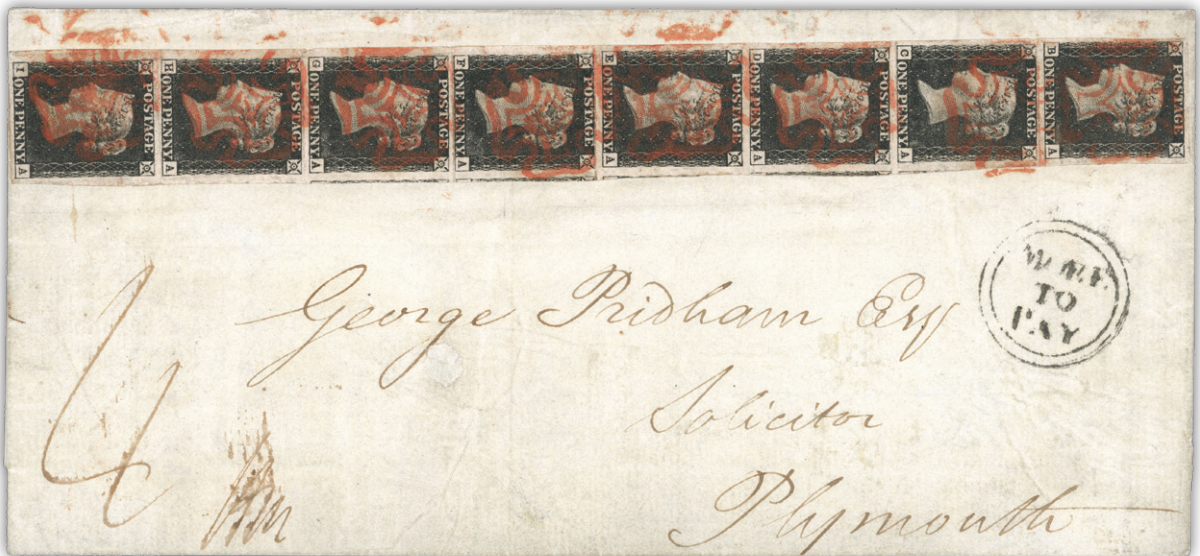 POSTAGE
I ONE PENNY A
POSTAGE
H ONE PENNY A
POSTAGE
G ONE PENNY A
POSTAGE
F ONE PENNY A
POSTAGE
E ONE PENNY A
POSTAGE
D ONE PENNY A
POSTAGE
C ONE PENNY A
POSTAGE
B ONE PENNY A
TO
PAY
George Pridham Esq
Solicitor
Plymouth